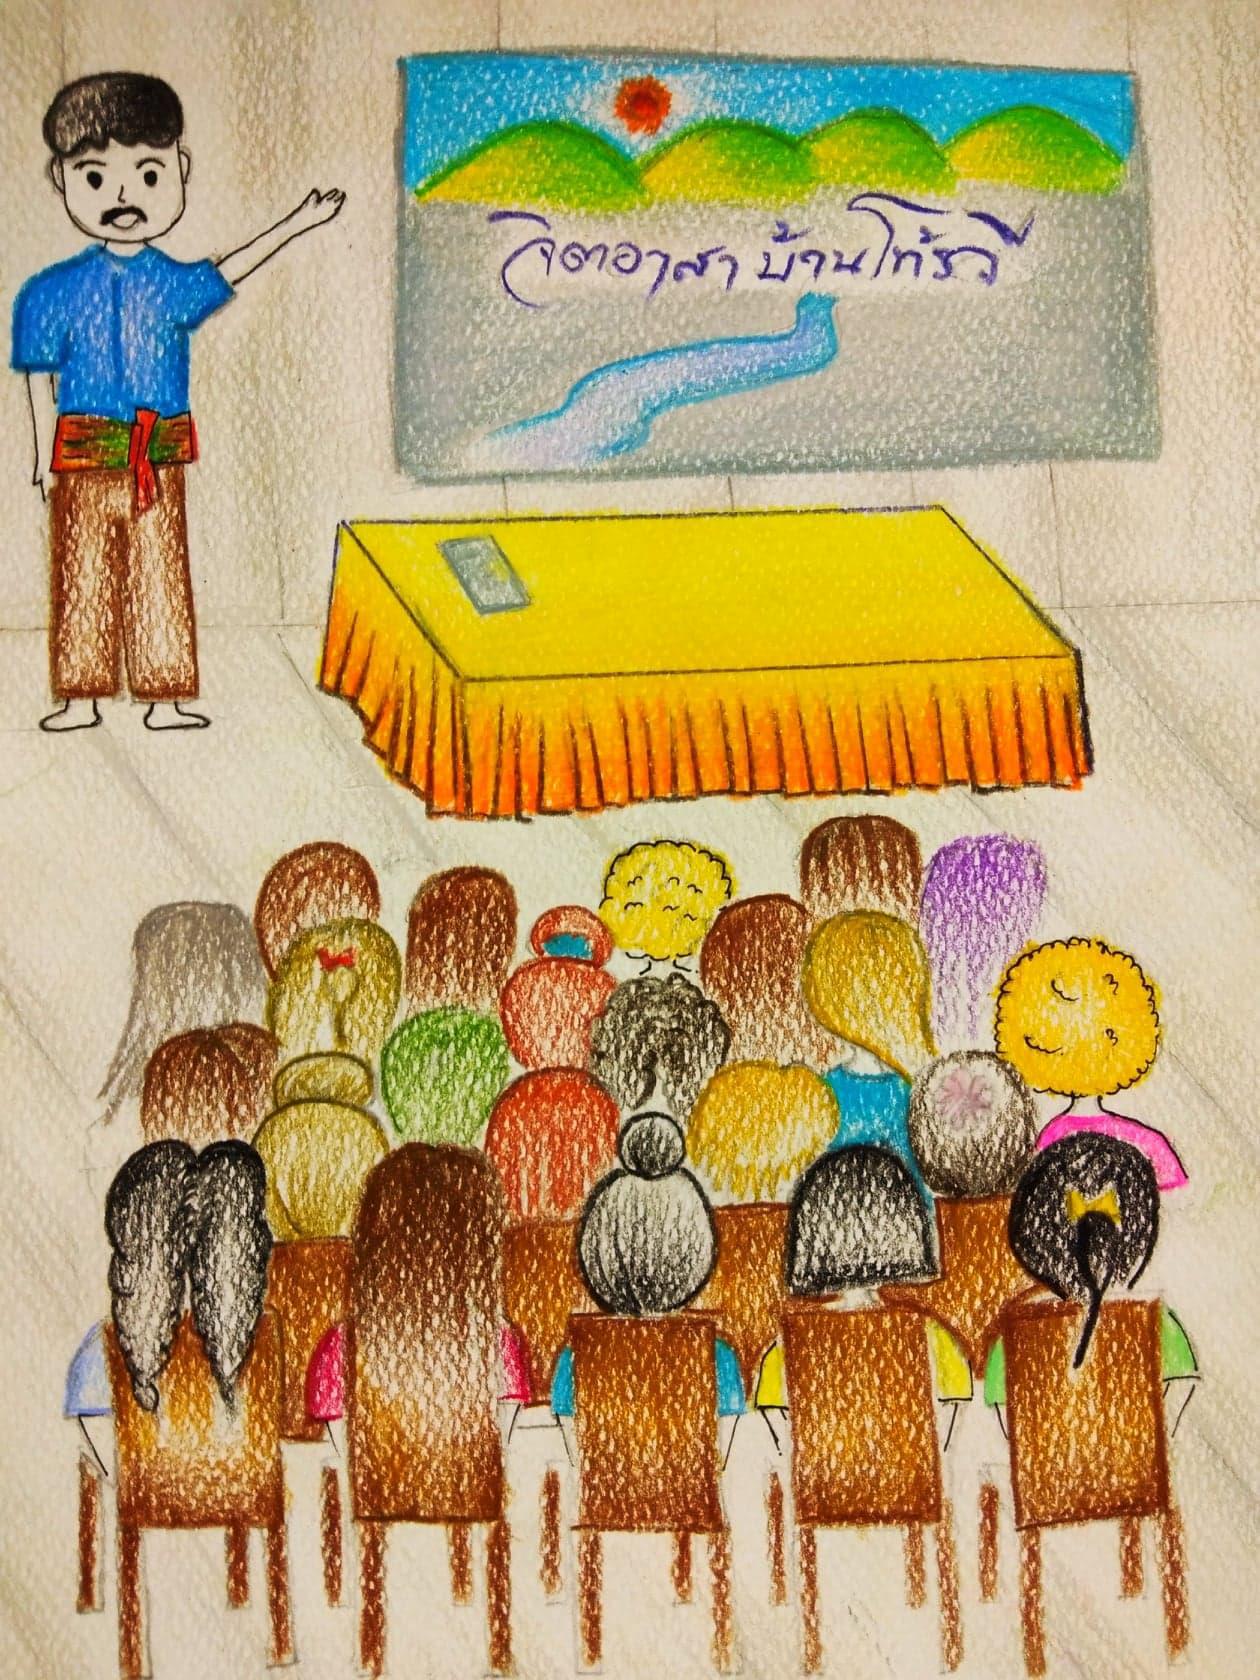 จิตอาสา บ้านโท้รวี